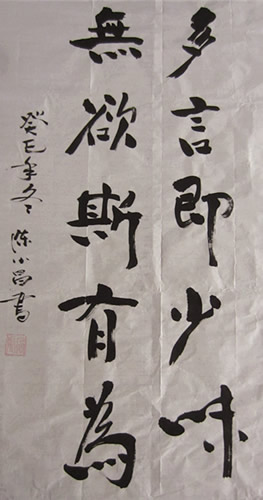 多言即少味
無欲斯有為
癸巳年冬 陈小昌書